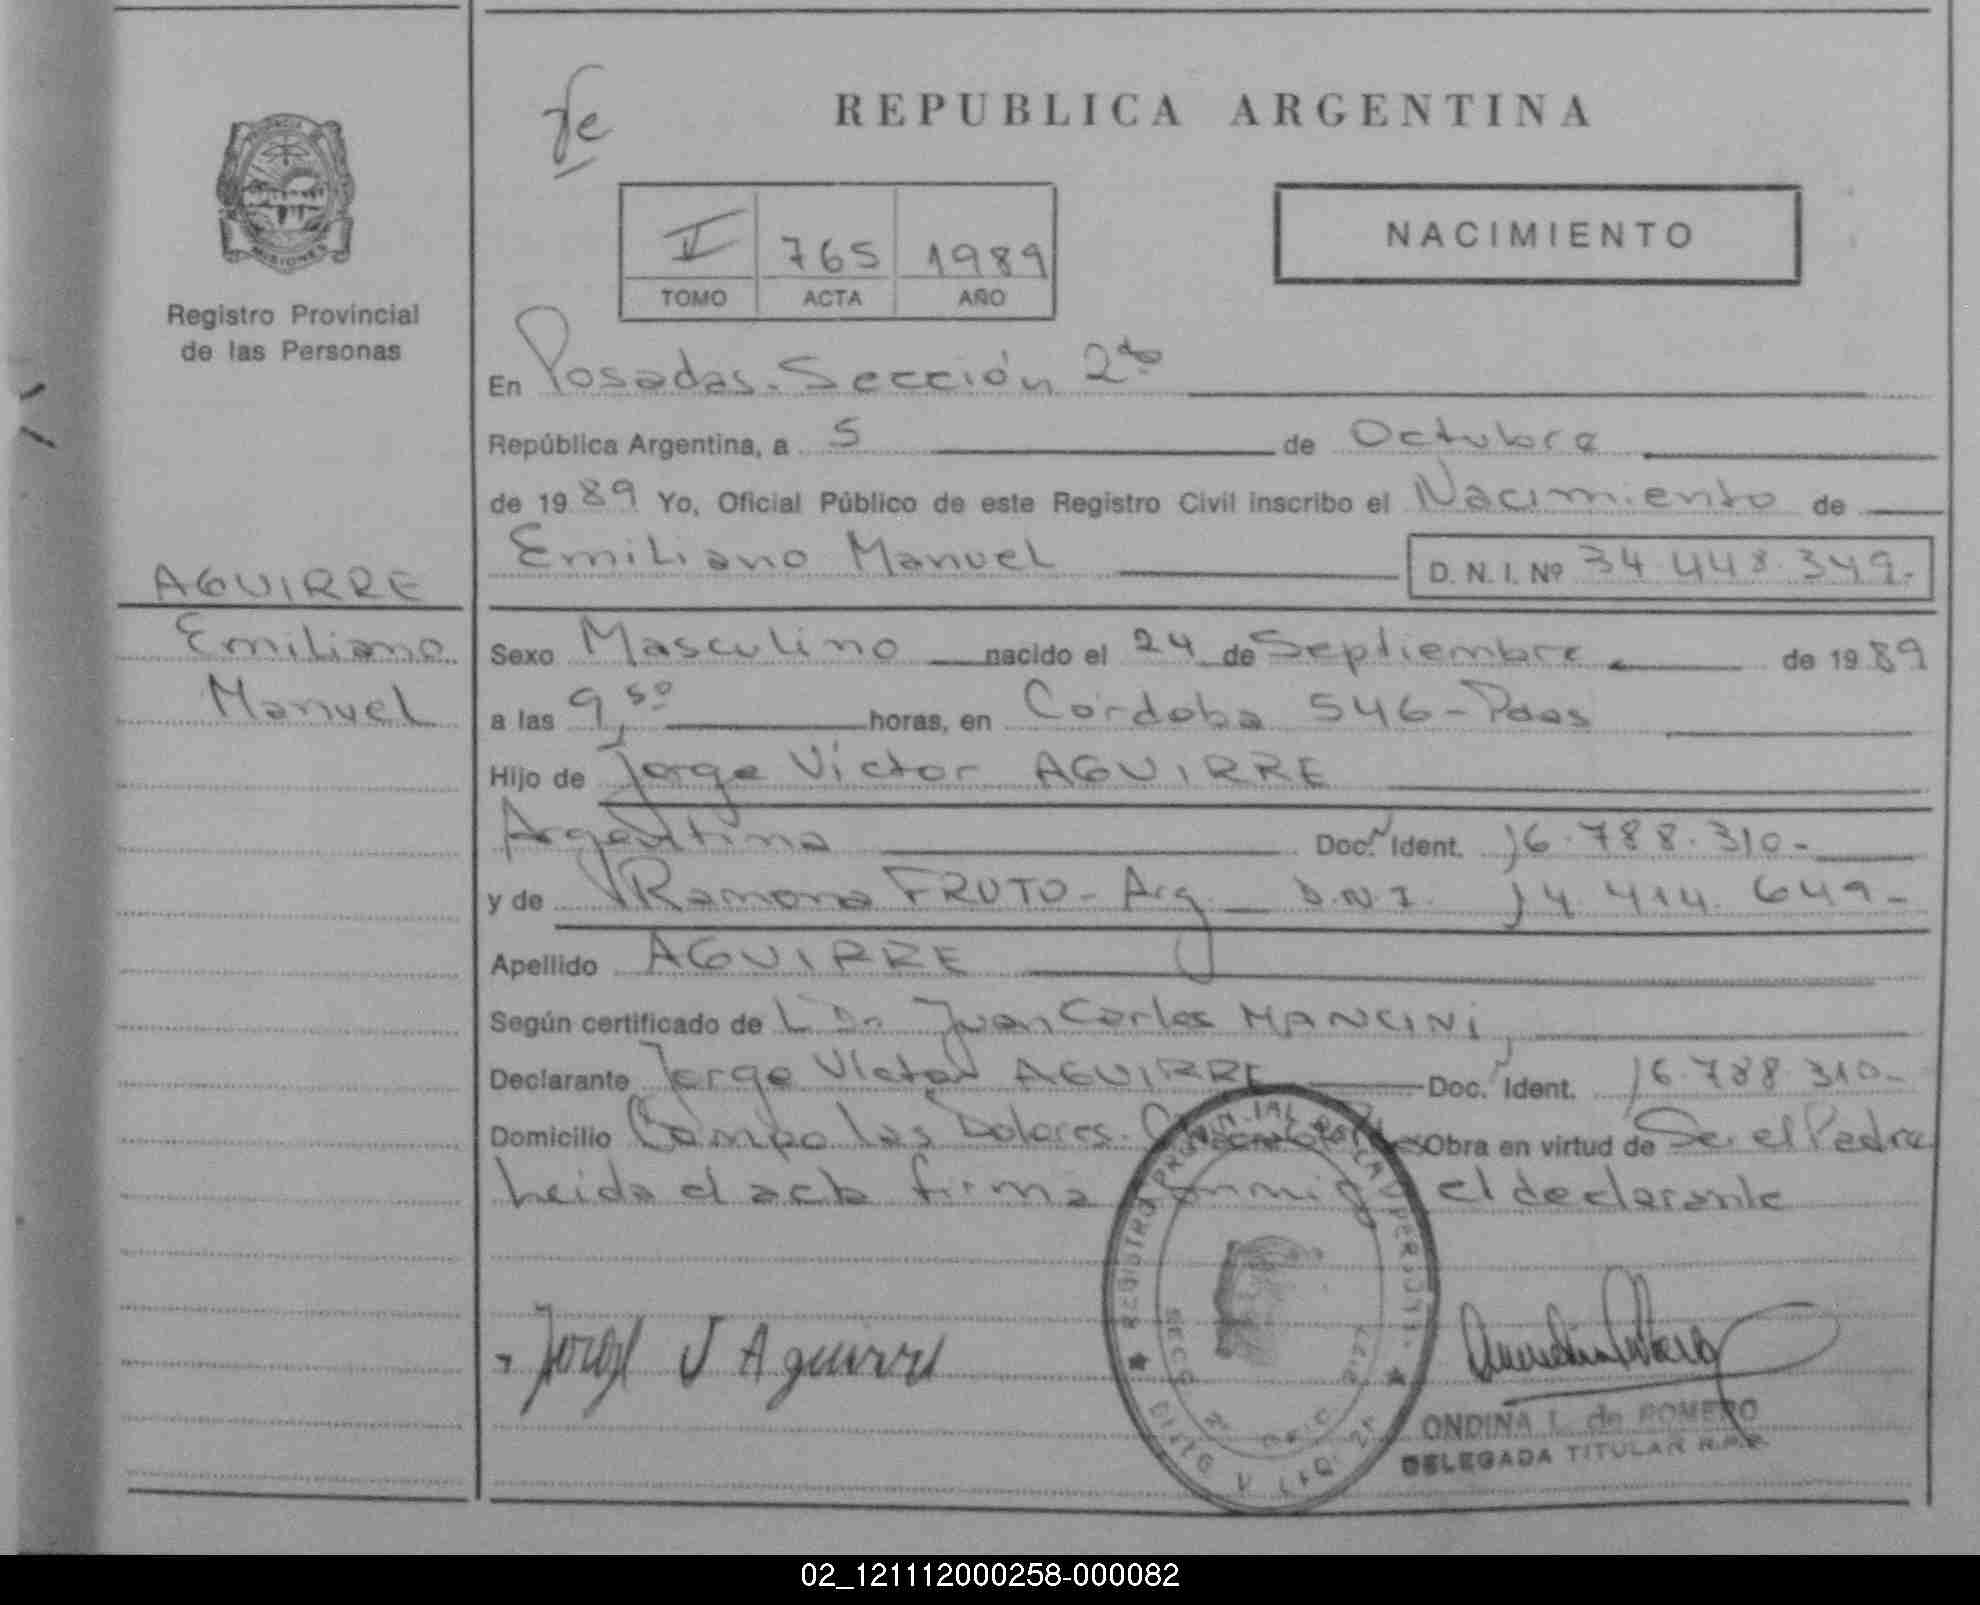 REPUBLICA ARGENTINA
NACIMIENTO
II 765 1989
TOMO ACTA AÑO
MISIONES
Registro Provincial
de las Personas
En Posadas. Sección 2da
República Argentina, a 5 de Octubre
de 1989 Yo, Oficial Público de este Registro Civil inscribo el Nacimiento de
Emiliano Manuel D. N. I. Nº 34.448.349.-
AGUIRRE
Emiliano
Manuel
Sexo Masculino nacido el 24 de Septiembre de 1989
a las 9,50 horas, en Córdoba 546-Pdas
Hijo de Jorge Víctor AGUIRRE
Argentina Doc. Ident. 16.788.310-
y de Ramona FRUTO- Arg. D.N.I. 14.414.649-
Apellido AGUIRRE
Según certificado de L Dr. Juan Carlos MANCINI
Declarante Jorge Victor AGUIRRE Doc. Ident. 16.788.310-
Domicilio Campo Las Dolores. Obra en virtud de Ser el Padre
Leida el acta firma conmigo el declarante
Jorge V Aguirre
REGISTRO PROVINCIAL DE LAS PERSONAS
ONDINA L. de ROMERO
DELEGADA TITULAR R.P.P.
02_121112000258-000082